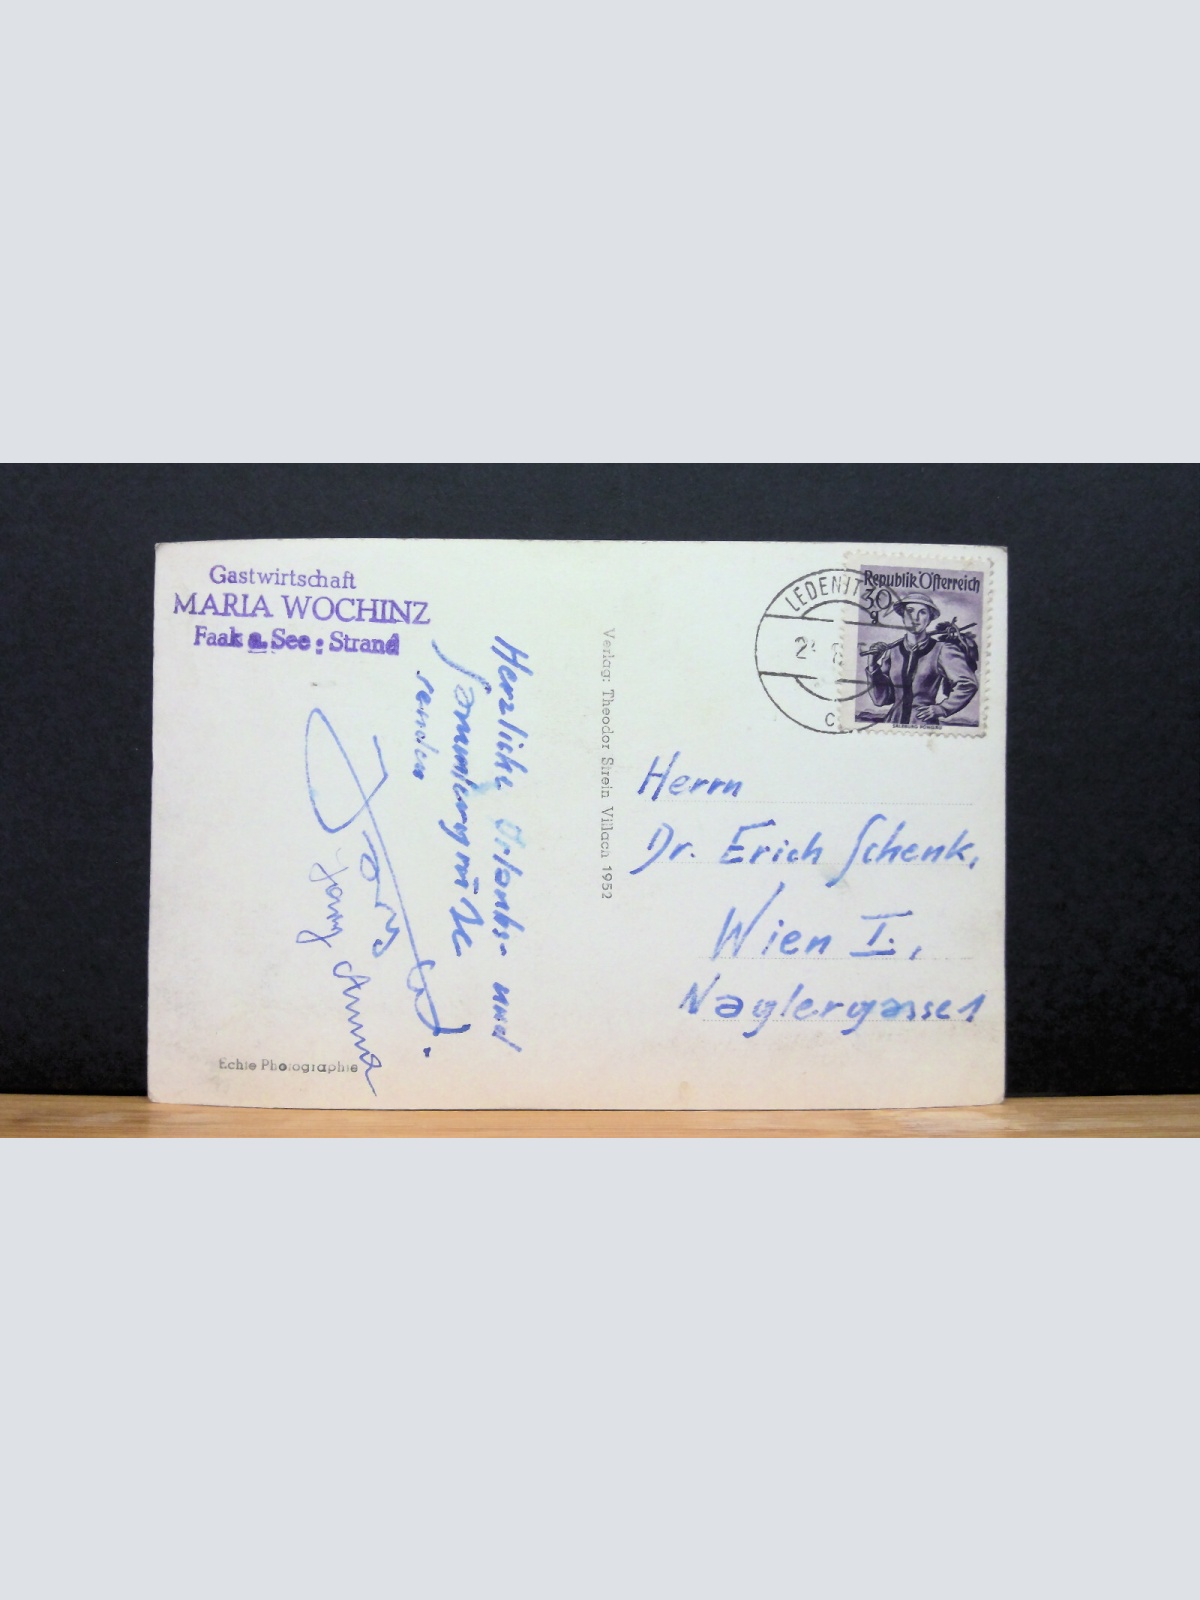 Gastwirtschaft
MARIA WOCHINZ
Faak a. See : Strand
Herzliche Urlaubs- und
Sommergrüße
senden
Anna
Echte Photographie
Verlag: Theodor Strein Villach 1952
LEDENIT
2
C
Republik Österreich
30
g
Herrn
Dr. Erich Schenk,
Wien I.,
Naglergasse 1